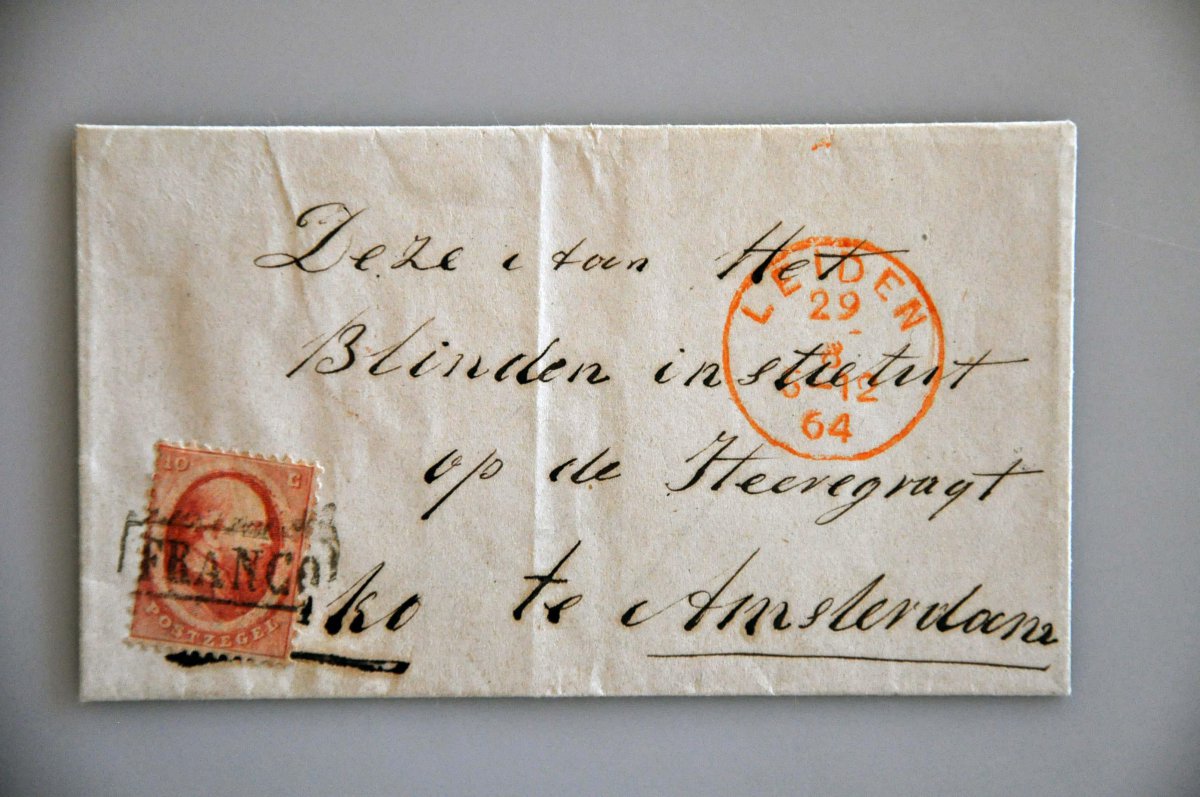 Deze i tan Het
Blinden instietut
op de Heeregragt
te Amsterdam
ko
LEIDEN
29
8
12
64
10 C
FRANCO
POSTZEGEL